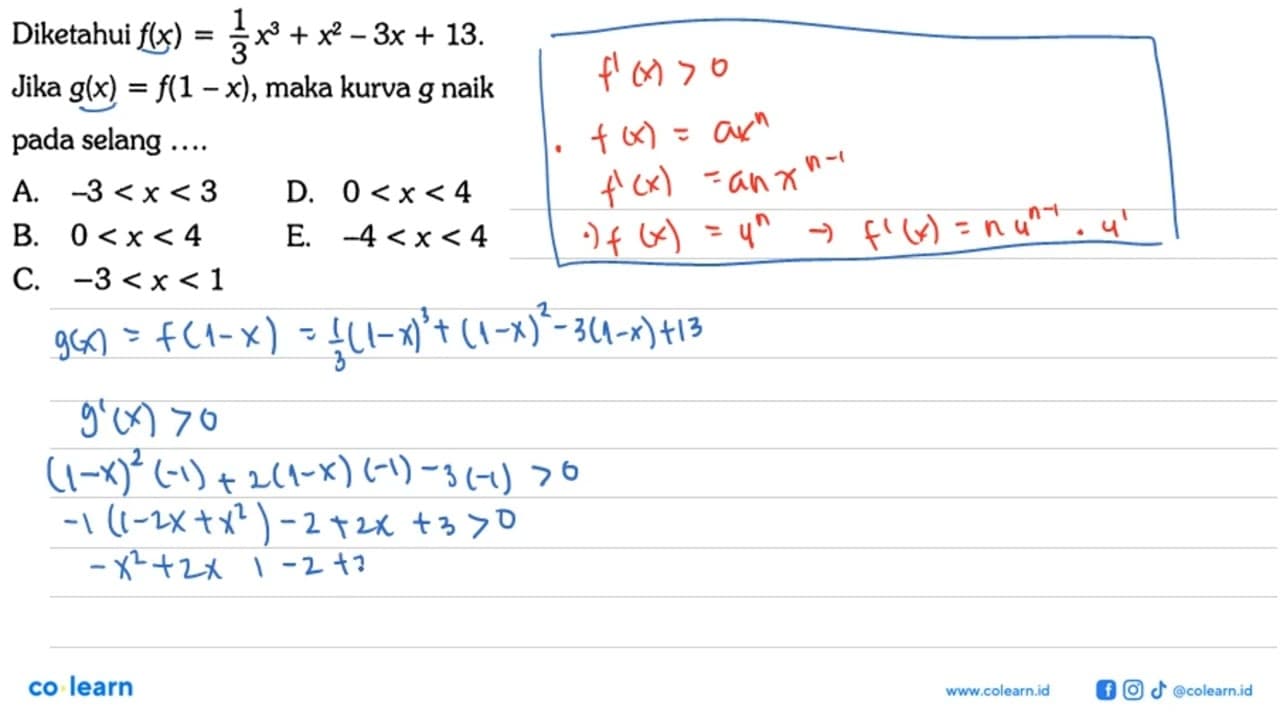 Diketahui f(x) = 1/3 x³ + x² – 3x + 13.
Jika g(x) = f(1 – x), maka kurva g naik
pada selang ....
A. –3 < x < 3 D. 0 < x < 4
B. 0 < x < 4 E. –4 < x < 4
C. –3 < x < 1
f'(x) > 0
. f(x) = axⁿ
f'(x) = anxⁿ⁻¹
.) f(x) = uⁿ → f'(x) = n uⁿ⁻¹ . u'
g(x) = f(1-x) = 1/3 (1-x)³ + (1-x)² - 3(1-x) + 13
g'(x) > 0
(1-x)² (-1) + 2(1-x) (-1) - 3(-1) > 0
-1 (1-2x+x²) - 2 + 2x + 3 > 0
-x² + 2x 1 - 2 +
co learn
www.colearn.id @colearn.id